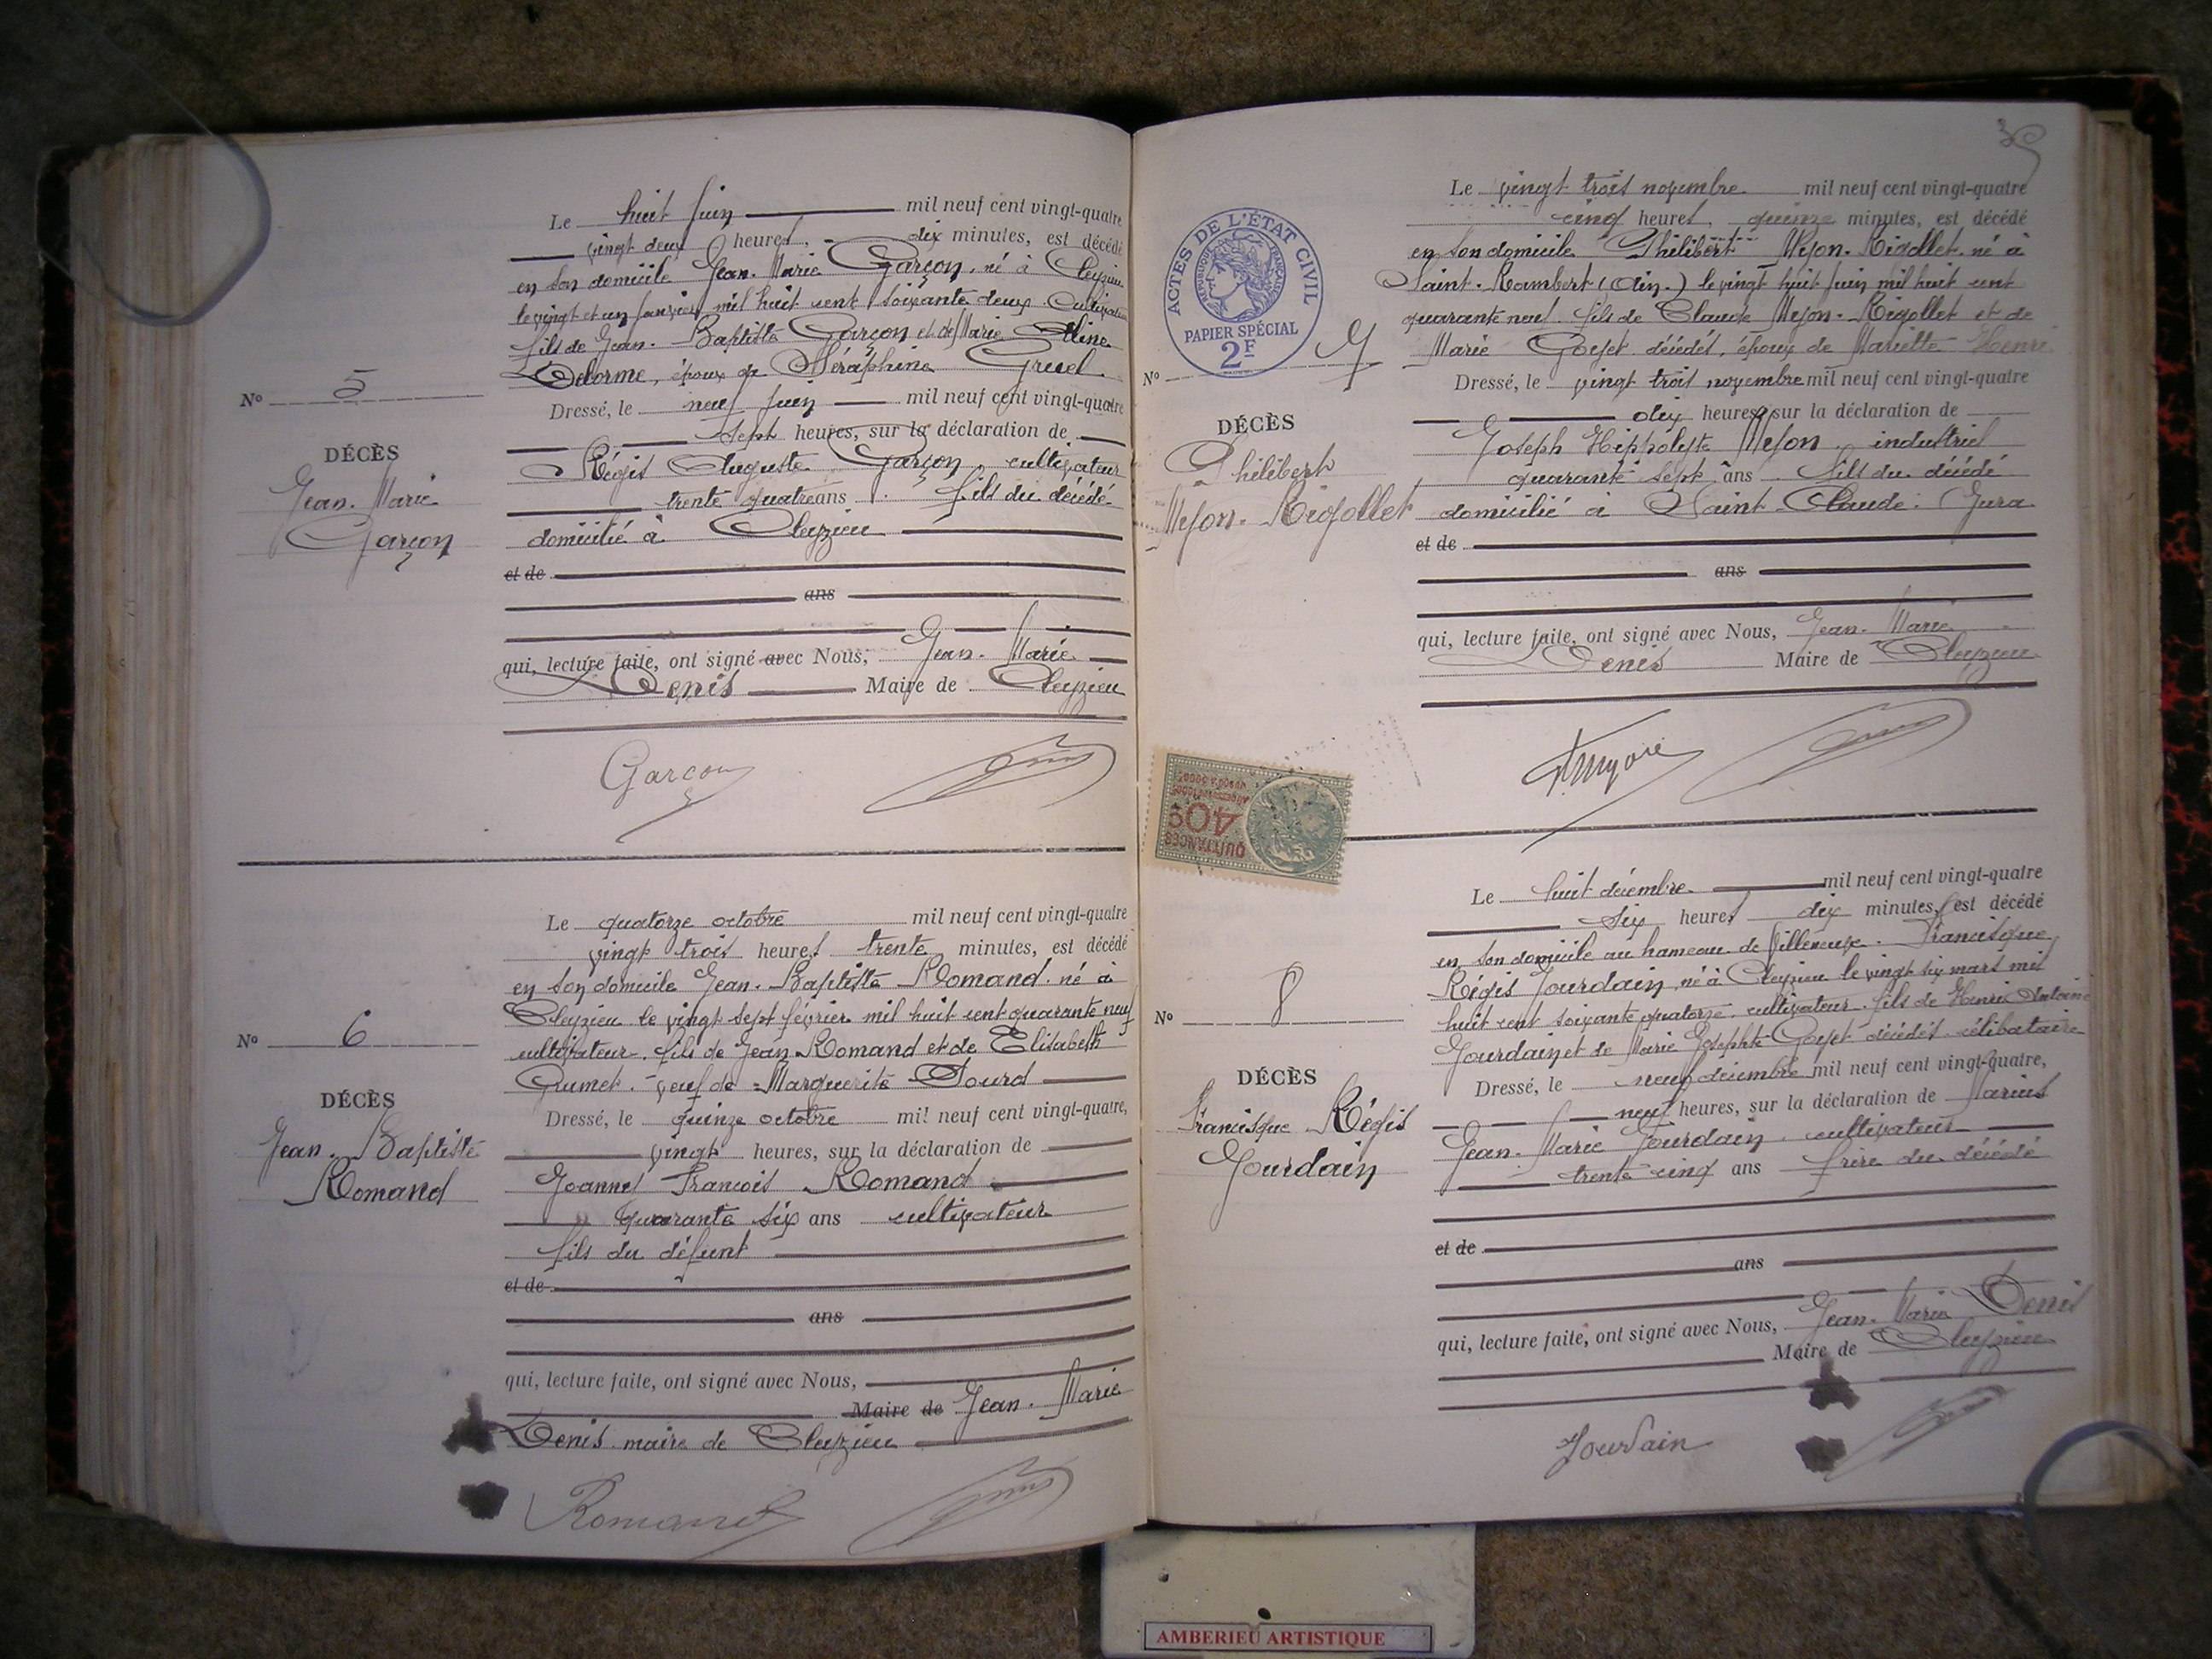 Le huit juin mil neuf cent vingt-quatre
vingt deux heures, dix minutes, est décédé
en son domicile Jean-Marie Garçon, né à Cleyzieu
le vingt et un janvier mil huit cent soixante deux Cultivateur
fils de Jean-Baptiste Garçon et de Marie Cline
Delorme, époux de Séraphine Gruel.
Nº 5
Dressé, le neuf juin mil neuf cent vingt-quatre
sept heures, sur la déclaration de
DÉCÈS
Jean-Marie
Garçon
Régis Auguste Garçon, cultivateur
trente quatre ans fils du décédé
domicilié à Cleyzieu
et de
ans
qui, lecture faite, ont signé avec Nous, Jean-Marie
Denis Maire de Cleyzieu
Garçon
Le quatorze octobre mil neuf cent vingt-quatre
vingt trois heures trente minutes, est décédé
en son domicile Jean-Baptiste Romand né à
Cleyzieu le vingt sept février mil huit cent quarante neuf
cultivateur, fils de Jean Romand et de Elisabeth
Grumet, veuf de Marguerite Sourd
Nº 6
DÉCÈS
Jean-Baptiste
Romand
Dressé, le quinze octobre mil neuf cent vingt-quatre,
vingt heures, sur la déclaration de
Joannes François Romand
quarante six ans cultivateur
fils du défunt
et de
ans
qui, lecture faite, ont signé avec Nous,
Maire de Jean-Marie
Denis maire de Cleyzieu
Romand
ACTES DE L'ÉTAT CIVIL
RÉPUBLIQUE FRANÇAISE
PAPIER SPÉCIAL
2F
Le vingt trois novembre mil neuf cent vingt-quatre
cinq heures, quinze minutes, est décédé
en son domicile Philibert Myon-Rigollet né à
Saint-Rambert (Ain) le vingt huit juin mil huit cent
quarante neuf fils de Claude Myon-Rigollet et de
Marie Goyet décédés, époux de Mariette Henri
Nº 7
DÉCÈS
Philibert
Myon-Rigollet
Dressé, le vingt trois novembre mil neuf cent vingt-quatre
dix heures, sur la déclaration de
Joseph Hippolyte Myon, industriel
quarante sept ans fils du décédé
domicilié à Saint-Claude. Jura
et de
ans
qui, lecture faite, ont signé avec Nous, Jean-Marie
Denis Maire de Cleyzieu
QUITTANCES
40c
Le huit décembre mil neuf cent vingt-quatre
six heures dix minutes, est décédé
en son domicile au hameau de Villeneuve. Francisque
Régis Jourdain, né à Cleyzieu le vingt six mars mil
huit cent soixante quatorze, cultivateur, fils de Henri Antoine
Jourdain et de Marie Josephte Goyet décédés célibataire
Nº 8
DÉCÈS
Francisque Régis
Jourdain
Dressé, le neuf décembre mil neuf cent vingt-quatre,
neuf heures, sur la déclaration de Marius
Jean-Marie Jourdain, cultivateur
trente cinq ans frère du décédé
et de
ans
qui, lecture faite, ont signé avec Nous, Jean-Marie Denis
Maire de Cleyzieu
Jourdain
AMBERIEU ARTISTIQUE